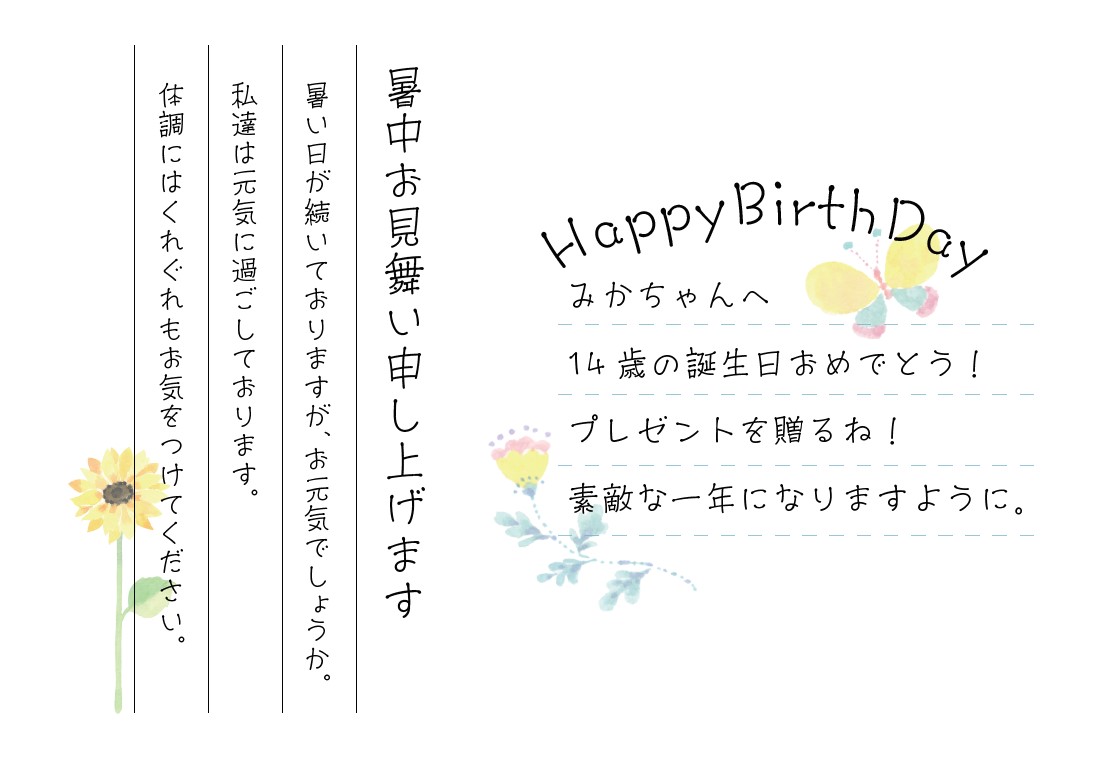 暑中お見舞い申し上げます
暑い日が続いておりますが、お元気でしょうか。
私達は元気に過ごしております。
体調にはくれぐれもお気をつけてください。
Happy Birth Day
みかちゃんへ
14歳の誕生日おめでとう！
プレゼントを贈るね！
素敵な一年になりますように。